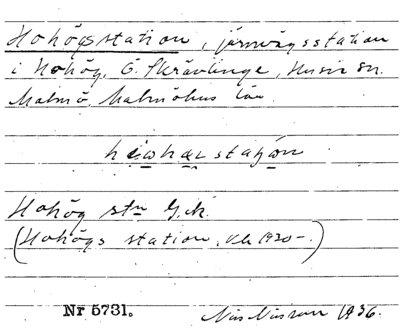 Hohögsstation, järnvägsstation
i Hohög, Ö. Skrävlinge, Husie sn.
Malmö, Malmöhus län
Hohög stn G.k.
(Hohögs station, Kh 1930-.)
Nr 5731.
Nils Nilsson 1936.